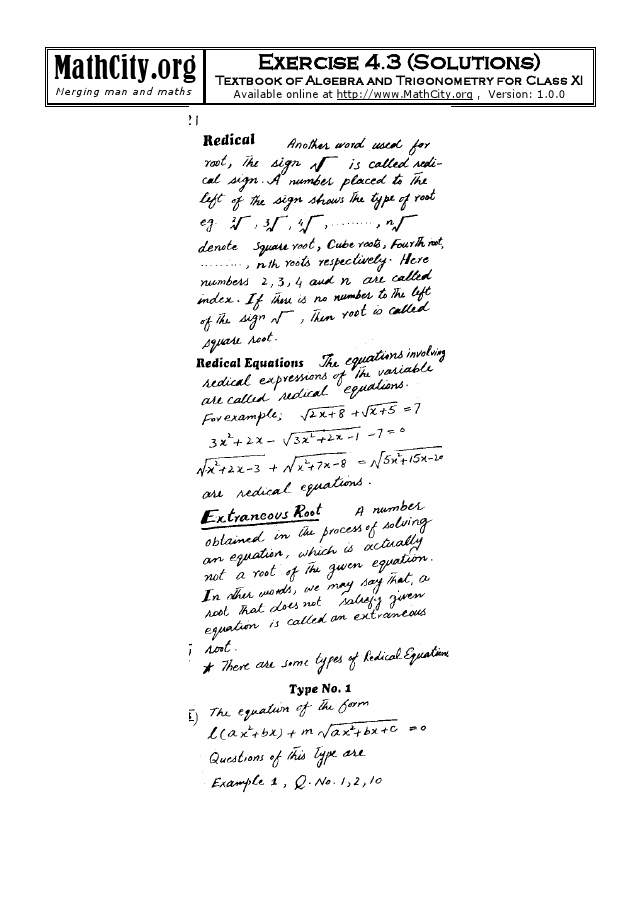 MathCity.org
Merging man and maths
EXERCISE 4.3 (SOLUTIONS)
TEXTBOOK OF ALGEBRA AND TRIGONOMETRY FOR CLASS XI
Available online at http://www.MathCity.org , Version: 1.0.0
Redical Another word used for
root, The sign √ is called redi-
cal sign. A number placed to the
left of the sign shows the type of root
eg. ²√ , ³√ , ⁴√ , ........., ⁿ√
denote Square root, Cube roots, Fourth root,
........., nth roots respectively. Here
numbers 2, 3, 4 and n are called
index. If there is no number to the left
of the sign √ , Then root is called
square root.
Redical Equations The equations involving
redical expressions of the variable
are called redical equations.
For example; √2x+8 + √x+5 = 7
3x²+2x - √3x²+2x-1 - 7 = 0
√x²+2x-3 + √x²+7x-8 = √5x²+15x-20
are redical equations.
Extraneous Root A number
obtained in the process of solving
an equation, which is actually
not a root of the given equation.
In other words, we may say that, a
root that does not satisfy given
equation is called an extraneous
root.
★ There are some types of Redical Equations
Type No. 1
i) The equation of the form
l(ax²+bx) + m √ax²+bx+c = 0
Questions of this type are
Example 1 , Q. No. 1, 2, 10